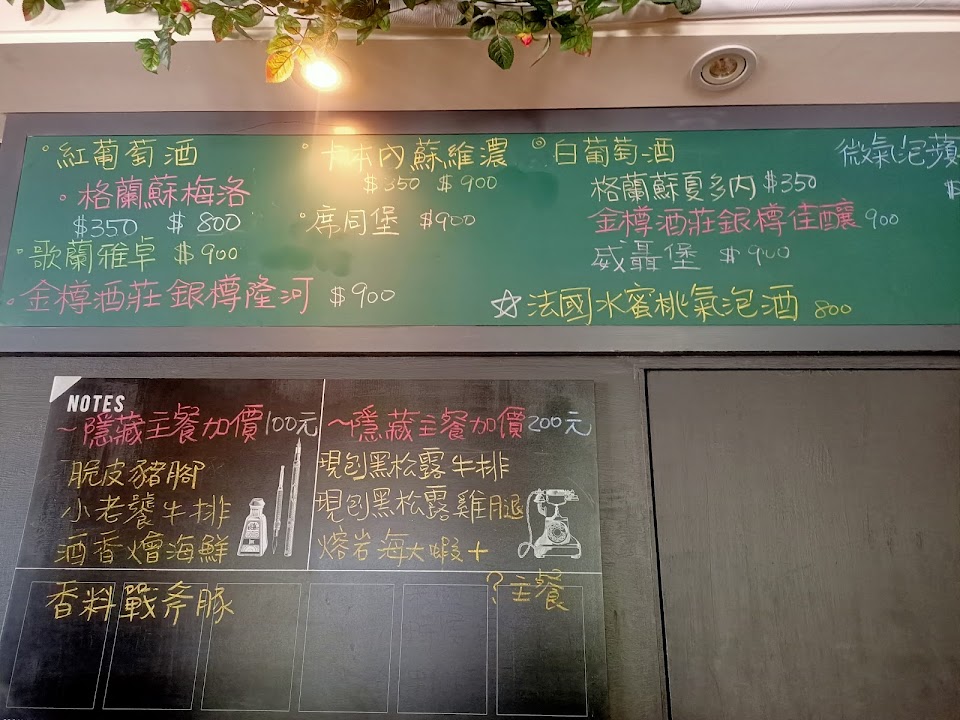 紅葡萄酒
格蘭蘇梅洛
$350 $800
歌蘭雅卓 $900
金樽酒莊銀樽隆河 $900
卡本內蘇維濃
$350 $900
席同堡 $900
白葡萄酒
格蘭蘇夏多內 $350
金樽酒莊銀樽佳釀 900
威聶堡 $900
☆法國水蜜桃氣泡酒 800
微氣泡蘋
$
NOTES
~隱藏主餐加價100元
脆皮豬腳
小老饕牛排
酒香燴海鮮
~隱藏主餐加價200元
現刨黑松露牛排
現刨黑松露雞腿
熔岩海大蝦+
?主餐
香料戰斧豚